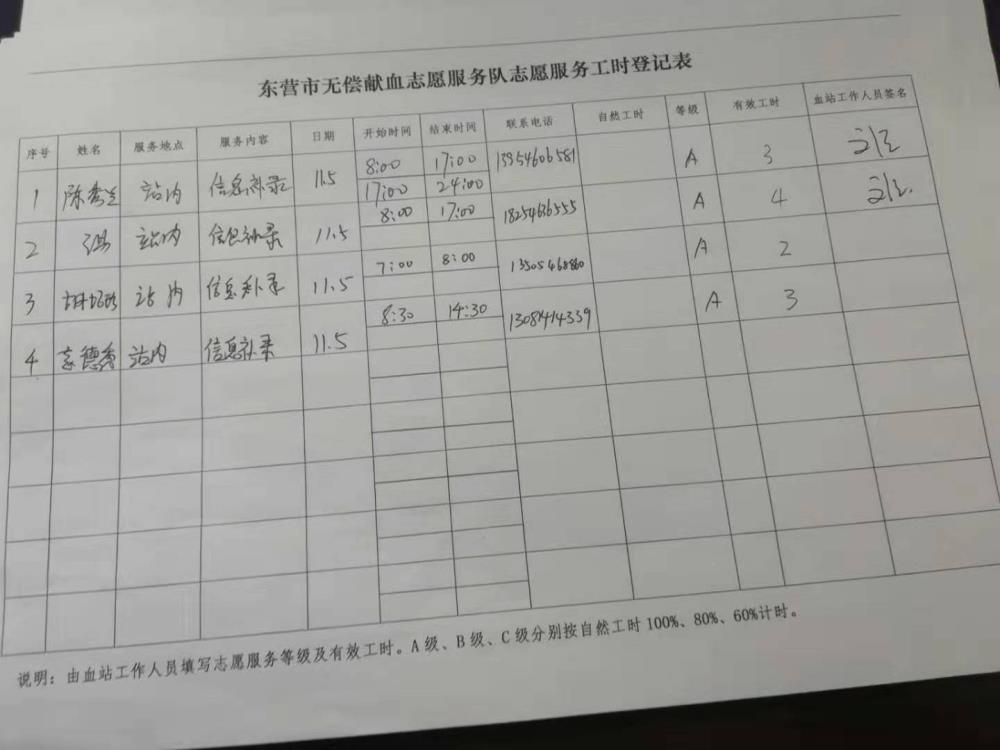 东营市无偿献血志愿服务队志愿服务工时登记表
序号 姓名 服务地点 服务内容 日期 开始时间 结束时间 联系电话 自然工时 等级 有效工时 血站工作人员签名
1 陈秀兰 站内 信息补录 11.5 8:00 17:00 13954606581 A 3
17:00 24:00
2 站内 信息补录 11.5 8:00 17:00 18254636555 A 4
3 站内 信息补录 11.5 7:00 8:00 A 2
4 站内 信息补录 11.5 8:30 14:30 A 3
说明：由血站工作人员填写志愿服务等级及有效工时。A级、B级、C级分别按自然工时100%、80%、60%计时。